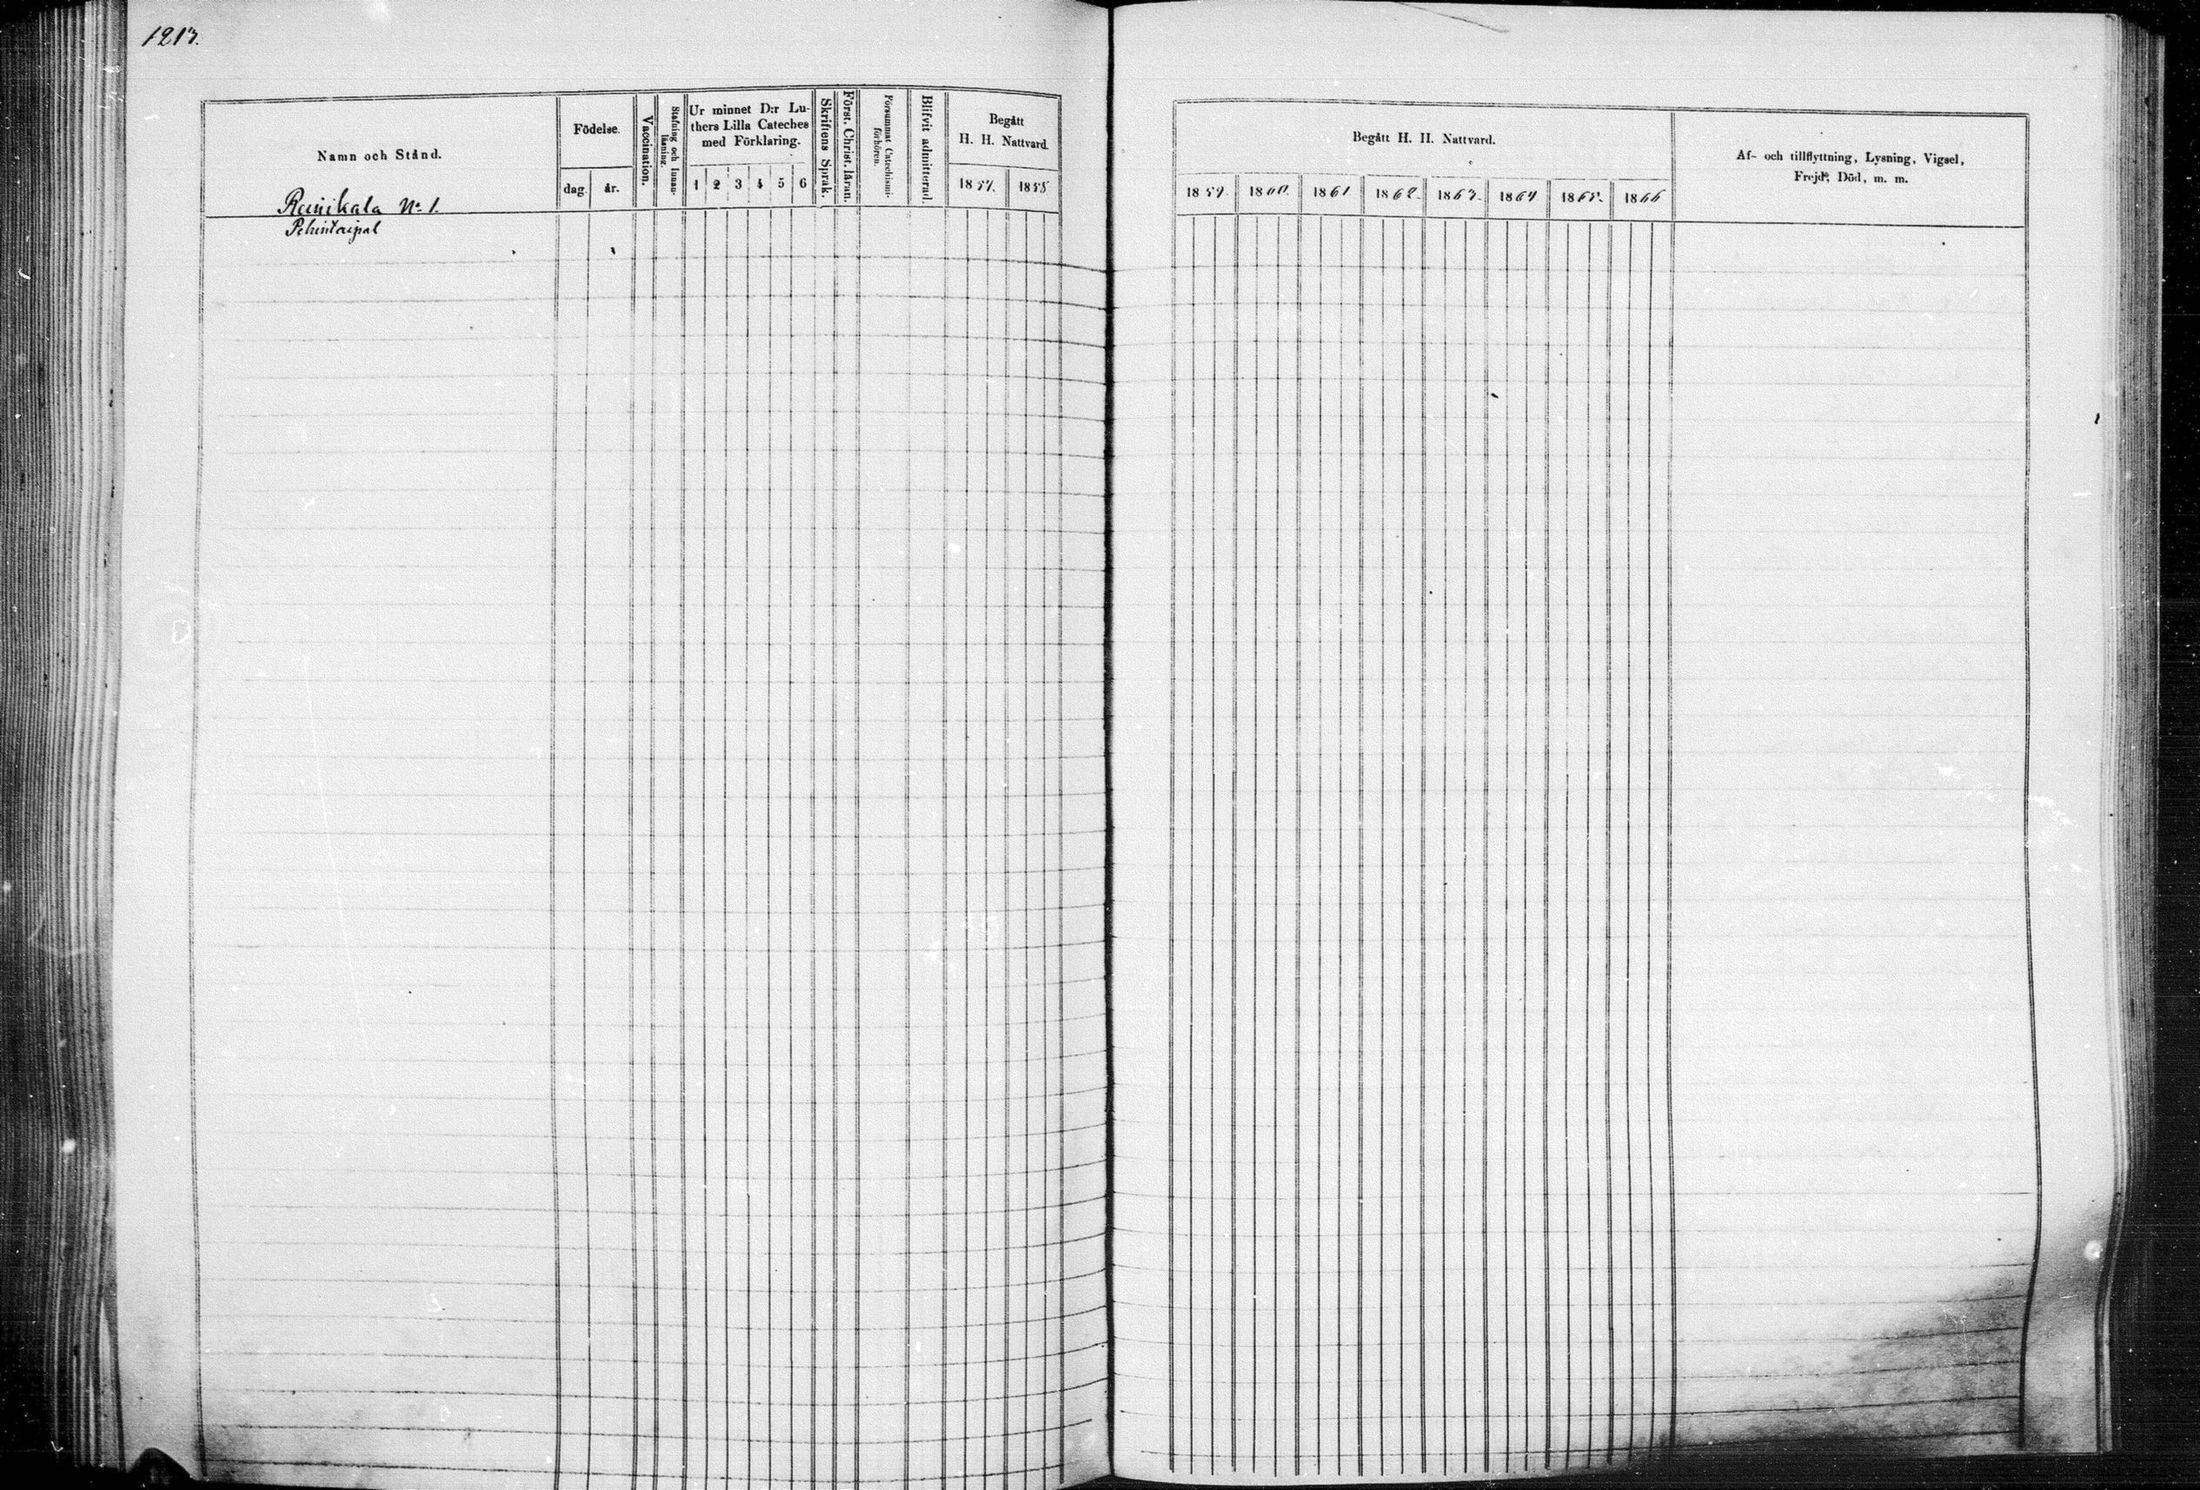 1213.
Namn och Stånd.
Födelse.
dag. år.
Vaccination.
Stafning och Innan-
läsning.
Ur minnet D:r Lu-
thers Lilla Cateches
med Förklaring.
1 2 3 4 5 6
Skriftens Språk.
Först. Christ. läran.
Försummat Catechismi-
förhören.
Blifvit admitterad.
Begått
H. H. Nattvard.
1857. 1858
No 1.
Begått H. H. Nattvard.
1859. 1860. 1861. 1862. 1863. 1864 1865. 1866
Af- och tillflyttning, Lysning, Vigsel,
Frejd, Död, m. m.